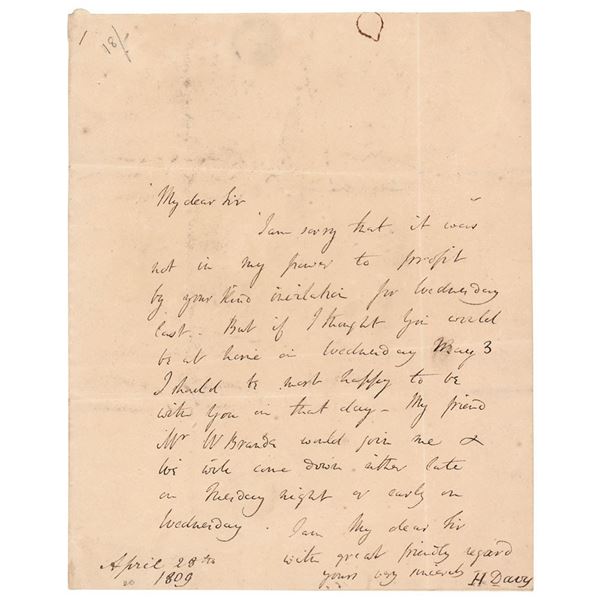 1
18/
My dear Sir
I am sorry that it was
not in my power to profit
by your kind invitation for Wednesday
last. - But if I thought You would
be at home on Wednesday May 3
I should be most happy to be
with You in that day - My friend
Mr W Brande would join me &
We will come down either late
on Tuesday night or early on
Wednesday. I am My dear Sir
with great friendly regard
yours very sincerely H Davy
April 28th
1809